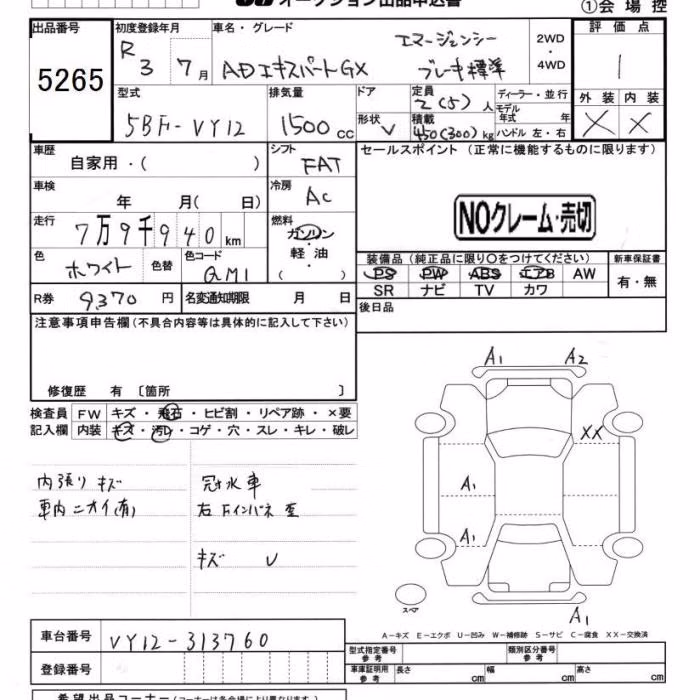 オークション出品申込書
①会場控
出品番号
5265
初度登録年月
R 3 7月
車名・グレード
エマージェンシー
ADエキスパートGX ブレーキ標準
2WD
・
4WD
評価点
1
型式
5BF-VY12
排気量
1500cc
ドア
形状
V
定員
2(5)人
積載
450(300)kg
ディーラー・並行
モデル年式 年
ハンドル 左・右
外装 内装
X X
車歴
自家用・( )
シフト
FAT
セールスポイント(正常に機能するものに限ります)
車検
年 月( 日)
冷房
AC
NOクレーム・売切
走行
7万9千940km
燃料
ガソリン
・
軽油
・
( )
色
ホワイト
色替
色コード
QM1
装備品(純正品に限り○をつけてください)
PS PW ABS エアB AW
SR ナビ TV カワ
新車保証書
有・無
R券
9370円
名変通知期限 月 日
後日品
注意事項申告欄(不具合内容等は具体的に記入して下さい)
修復歴 有〔箇所 〕
検査員
記入欄
FW キズ・飛石・ヒビ割・リペア跡・×要
内装 キズ・汚レ・コゲ・穴・スレ・キレ・破レ
内張りキズ
車内ニオイ(有)
冠水車
右Fインパネ歪
キズ U
A1 A2
XX
A1
A1
A1
スペア
A―キズ E―エクボ U―凹み W―補修跡 S―サビ C―腐食 XX―交換済
車台番号
VY12-313760
登録番号
型式指定番号
参考
類別区分番号
参考
車庫証明用
参考
長さ cm
幅 cm
高さ cm
希望出品コーナー(コーナーは各会場により異なります)